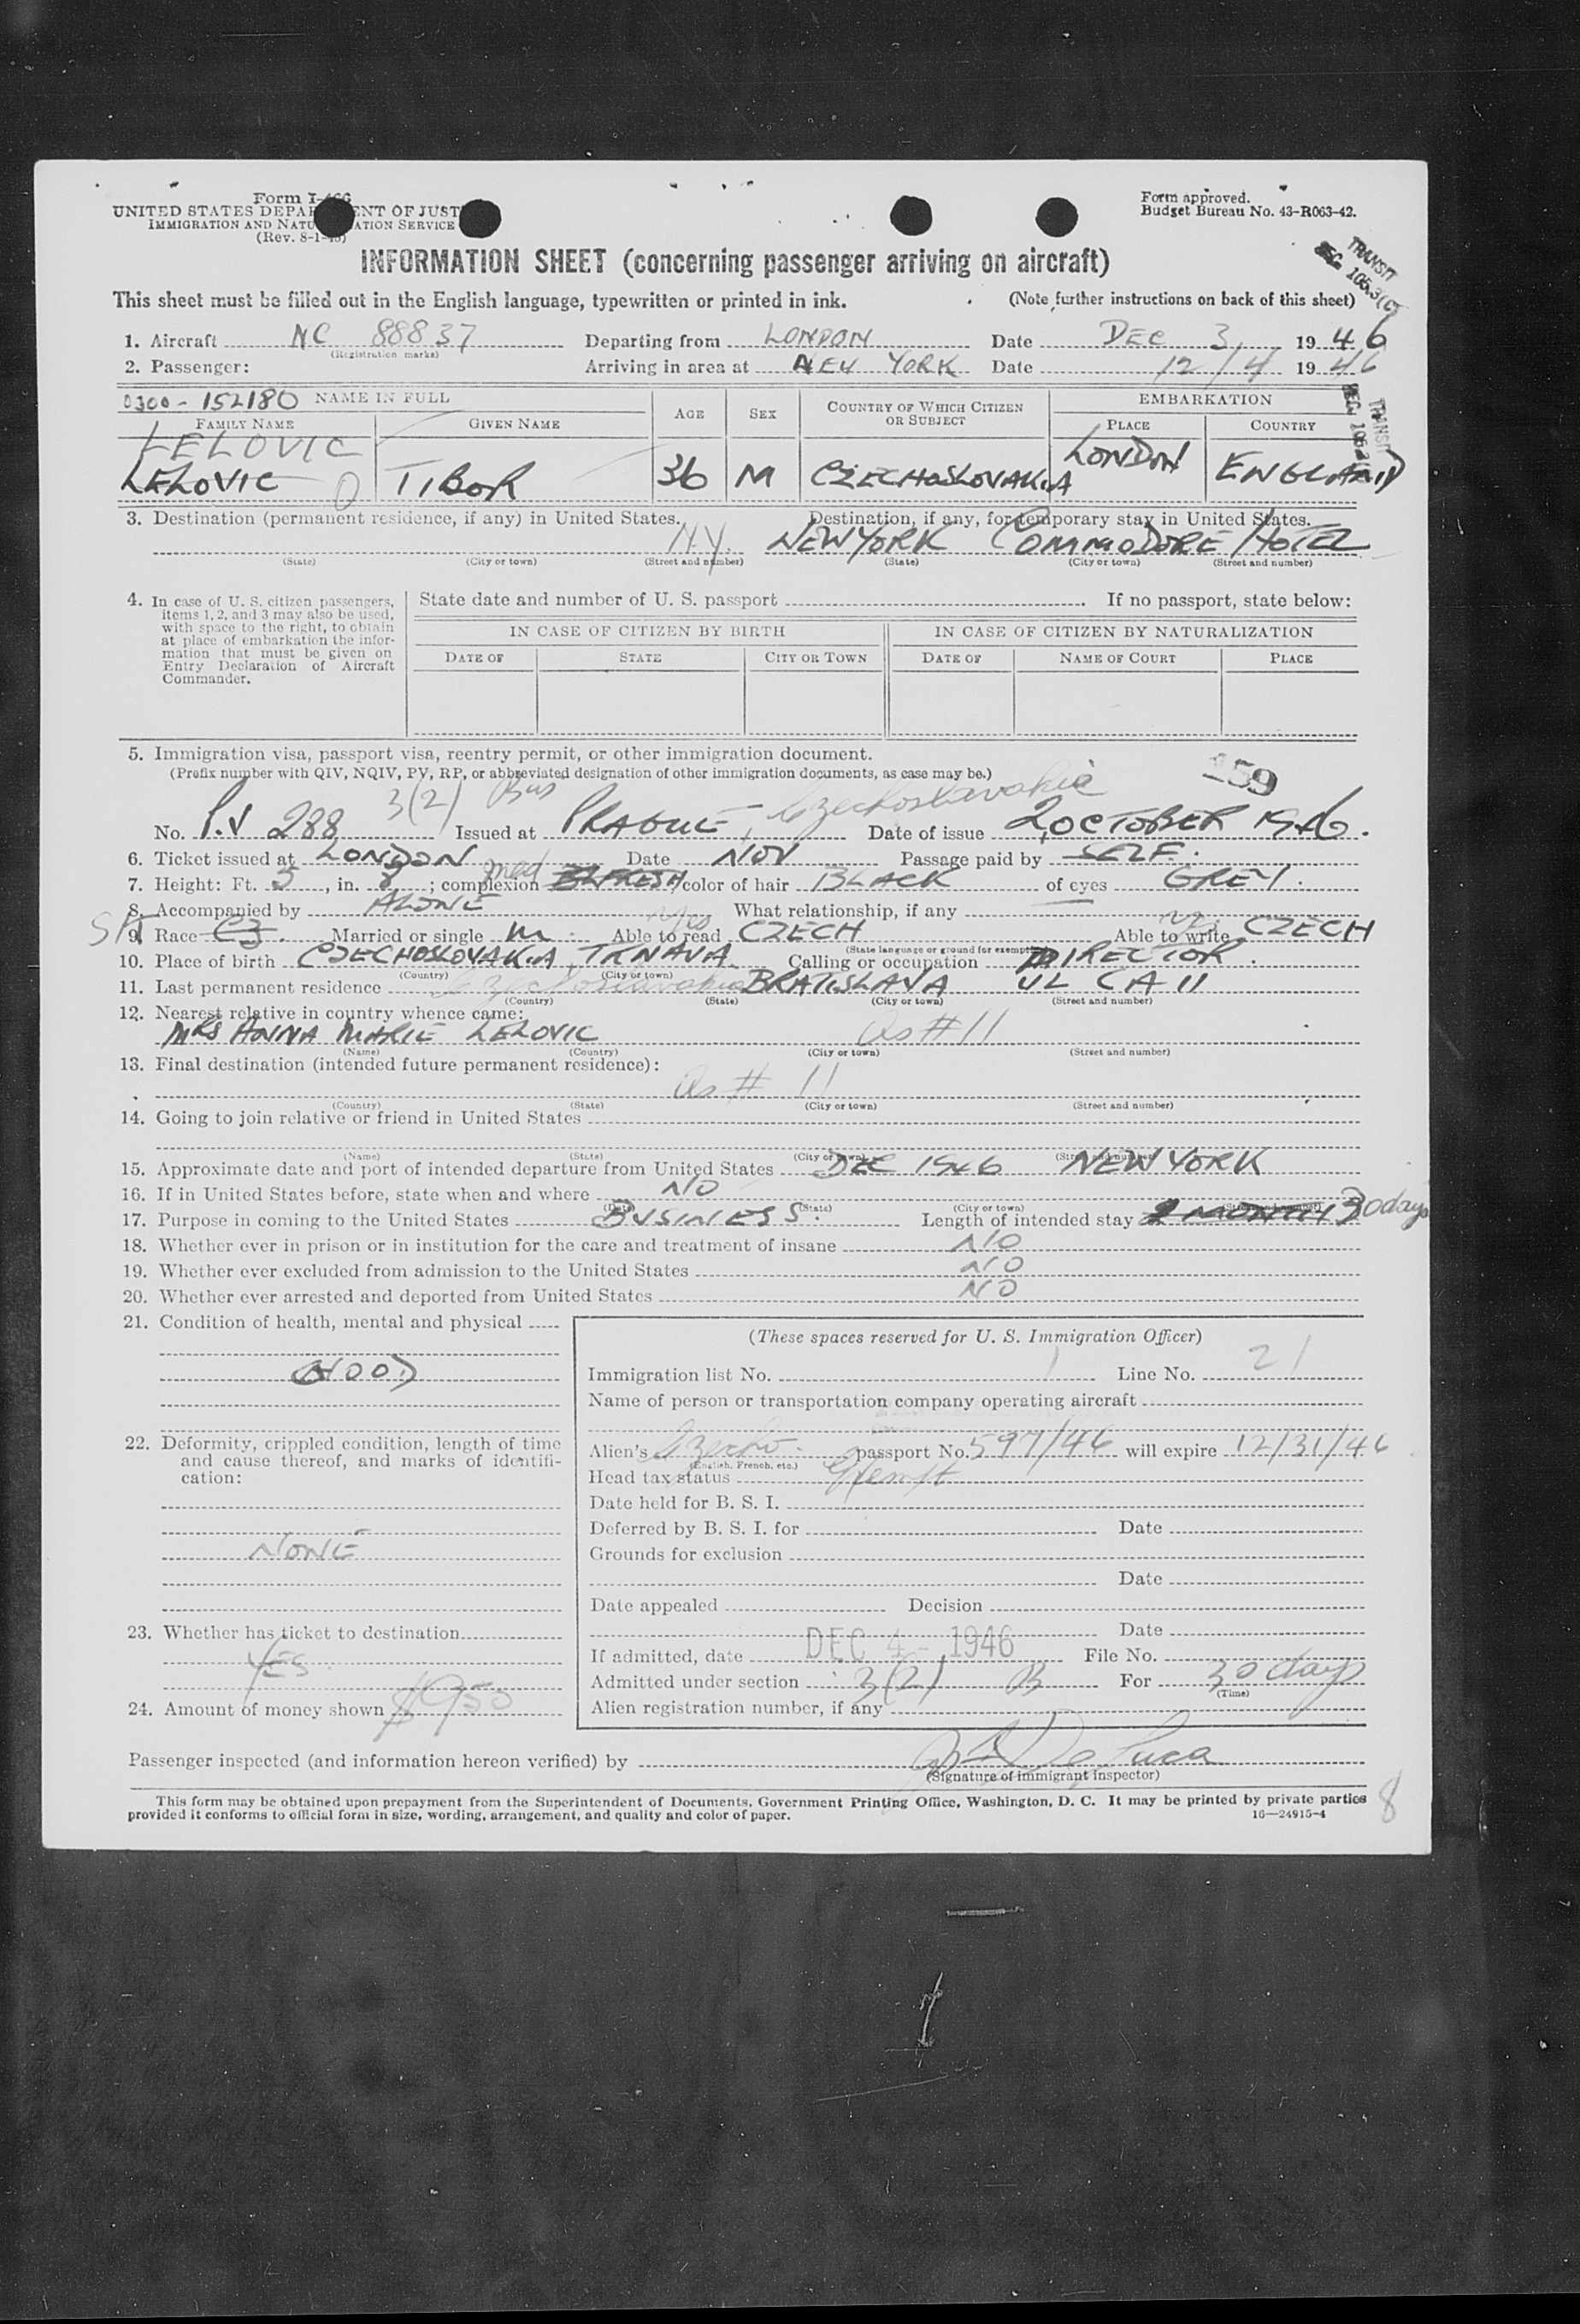 Form I-466
UNITED STATES DEPARTMENT OF JUSTICE
IMMIGRATION AND NATURALIZATION SERVICE
(Rev. 8-1-45)
Form approved.
Budget Bureau No. 43-R063-42.
INFORMATION SHEET (concerning passenger arriving on aircraft)
TRANSIT
SEC. 105.3(C)
This sheet must be filled out in the English language, typewritten or printed in ink. (Note further instructions on back of this sheet)
1. Aircraft NC 88837 Departing from LONDON Date DEC 3, 1946
(Registration marks)
2. Passenger: Arriving in area at NEW YORK Date 12/4 1946
0300-152180 NAME IN FULL AGE SEX COUNTRY OF WHICH CITIZEN OR SUBJECT EMBARKATION
FAMILY NAME GIVEN NAME PLACE COUNTRY
TRANSIT
LELOVIC
LELOVIC TIBOR 36 M CZECHOSLOVAKIA LONDON ENGLAND
3. Destination (permanent residence, if any) in United States. Destination, if any, for temporary stay in United States.
N.Y. NEW YORK COMMODORE HOTEL
(State) (City or town) (Street and number) (State) (City or town) (Street and number)
4. In case of U. S. citizen passengers, items 1, 2, and 3 may also be used, with space to the right, to obtain at place of embarkation the information that must be given on Entry Declaration of Aircraft Commander.
State date and number of U. S. passport If no passport, state below:
IN CASE OF CITIZEN BY BIRTH IN CASE OF CITIZEN BY NATURALIZATION
DATE OF STATE CITY OR TOWN DATE OF NAME OF COURT PLACE
5. Immigration visa, passport visa, reentry permit, or other immigration document.
(Prefix number with QIV, NQIV, PV, RP, or abbreviated designation of other immigration documents, as case may be.)
159
3(2) Bus
No. P.V 288 Issued at PRAGUE, Czechoslovakia Date of issue 2, OCTOBER 1946.
6. Ticket issued at LONDON Date NOV Passage paid by SELF.
7. Height: Ft. 5, in. 8; complexion med FRESH color of hair BLACK of eyes GREY.
8. Accompanied by ALONE What relationship, if any —
9. Race Cz. Married or single m. Able to read Yes CZECH Able to write CZECH
(State language or ground for exemption)
10. Place of birth CZECHOSLOVAKIA, TRNAVA Calling or occupation DIRECTOR.
(Country) (City or town)
11. Last permanent residence Czechoslovakia BRATISLAVA UL CA 11
(Country) (State) (City or town) (Street and number)
12. Nearest relative in country whence came:
MRS ANNA MARIE LELOVIC as #11
(Name) (Country) (City or town) (Street and number)
13. Final destination (intended future permanent residence):
as # 11
(Country) (State) (City or town) (Street and number)
14. Going to join relative or friend in United States
(Name) (State) (City or town) (Street and number)
15. Approximate date and port of intended departure from United States DEC 1946 NEW YORK
16. If in United States before, state when and where NO
(Date) (State) (City or town) (Street and number)
17. Purpose in coming to the United States BUSINESS. Length of intended stay 2 MONTH 30 days
18. Whether ever in prison or in institution for the care and treatment of insane NO
19. Whether ever excluded from admission to the United States NO
20. Whether ever arrested and deported from United States NO
21. Condition of health, mental and physical
GOOD
22. Deformity, crippled condition, length of time and cause thereof, and marks of identification:
NONE
23. Whether has ticket to destination
YES
24. Amount of money shown $950
(These spaces reserved for U. S. Immigration Officer)
Immigration list No. 1 Line No. 21
Name of person or transportation company operating aircraft
Alien's Czecho. passport No. 597/46 will expire 12/31/46
(English, French, etc.)
Head tax status Exempt
Date held for B. S. I.
Deferred by B. S. I. for Date
Grounds for exclusion
Date
Date appealed Decision
Date
If admitted, date DEC 4 - 1946 File No.
Admitted under section 3(2) B For 30 days
(Time)
Alien registration number, if any
Passenger inspected (and information hereon verified) by De Luca
(Signature of immigrant inspector)
This form may be obtained upon prepayment from the Superintendent of Documents, Government Printing Office, Washington, D. C. It may be printed by private parties
provided it conforms to official form in size, wording, arrangement, and quality and color of paper. 16—24915-4
8